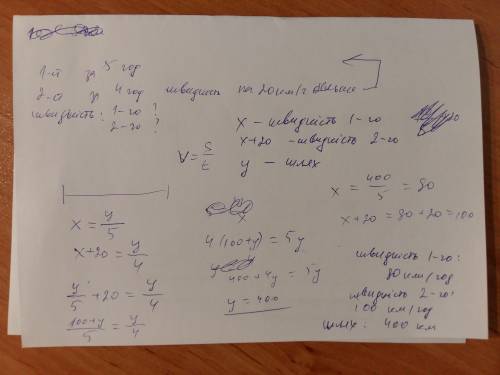 1-й за 5 год
2-й за 4 год швидкість на 20км/г більше
швидкість: 1-го ?
2-го ?
x - швидкість 1-го
x+20 - швидкість 2-го
V = S/T
y - шлях
x = y/5
x+20 = y/4
y/5 + 20 = y/4
(100+y)/5 = y/4
4(100+y) = 5y
400+4y = 5y
y = 400
x = 400/5 = 80
x+20 = 80+20 = 100
швидкість 1-го:
80 км/год
швидкість 2-го:
100 км/год
шлях: 400 км